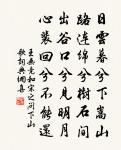 日雲暮兮下嵩山
路連綿兮樹石間
出谷口兮見明月
心裴回兮不能還
王無競和宋之問下山
歌詞典網